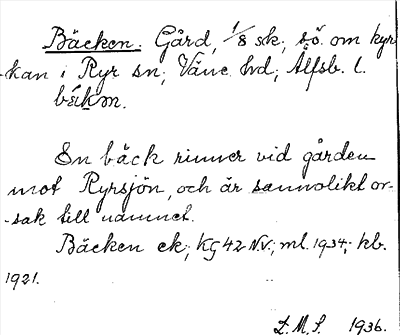 Bäcken. Gård, 1/8 sk; sö. om kyr-
kan i Ryr sn; Väne hd; Älfsb. l.
En bäck rinner vid gården
mot Ryrsjön, och är sannolikt or-
-sak till namnet.
Bäcken ek; KG 42 N.V.; ml. 1934; kb.
1921.
L. M. S. 1936.